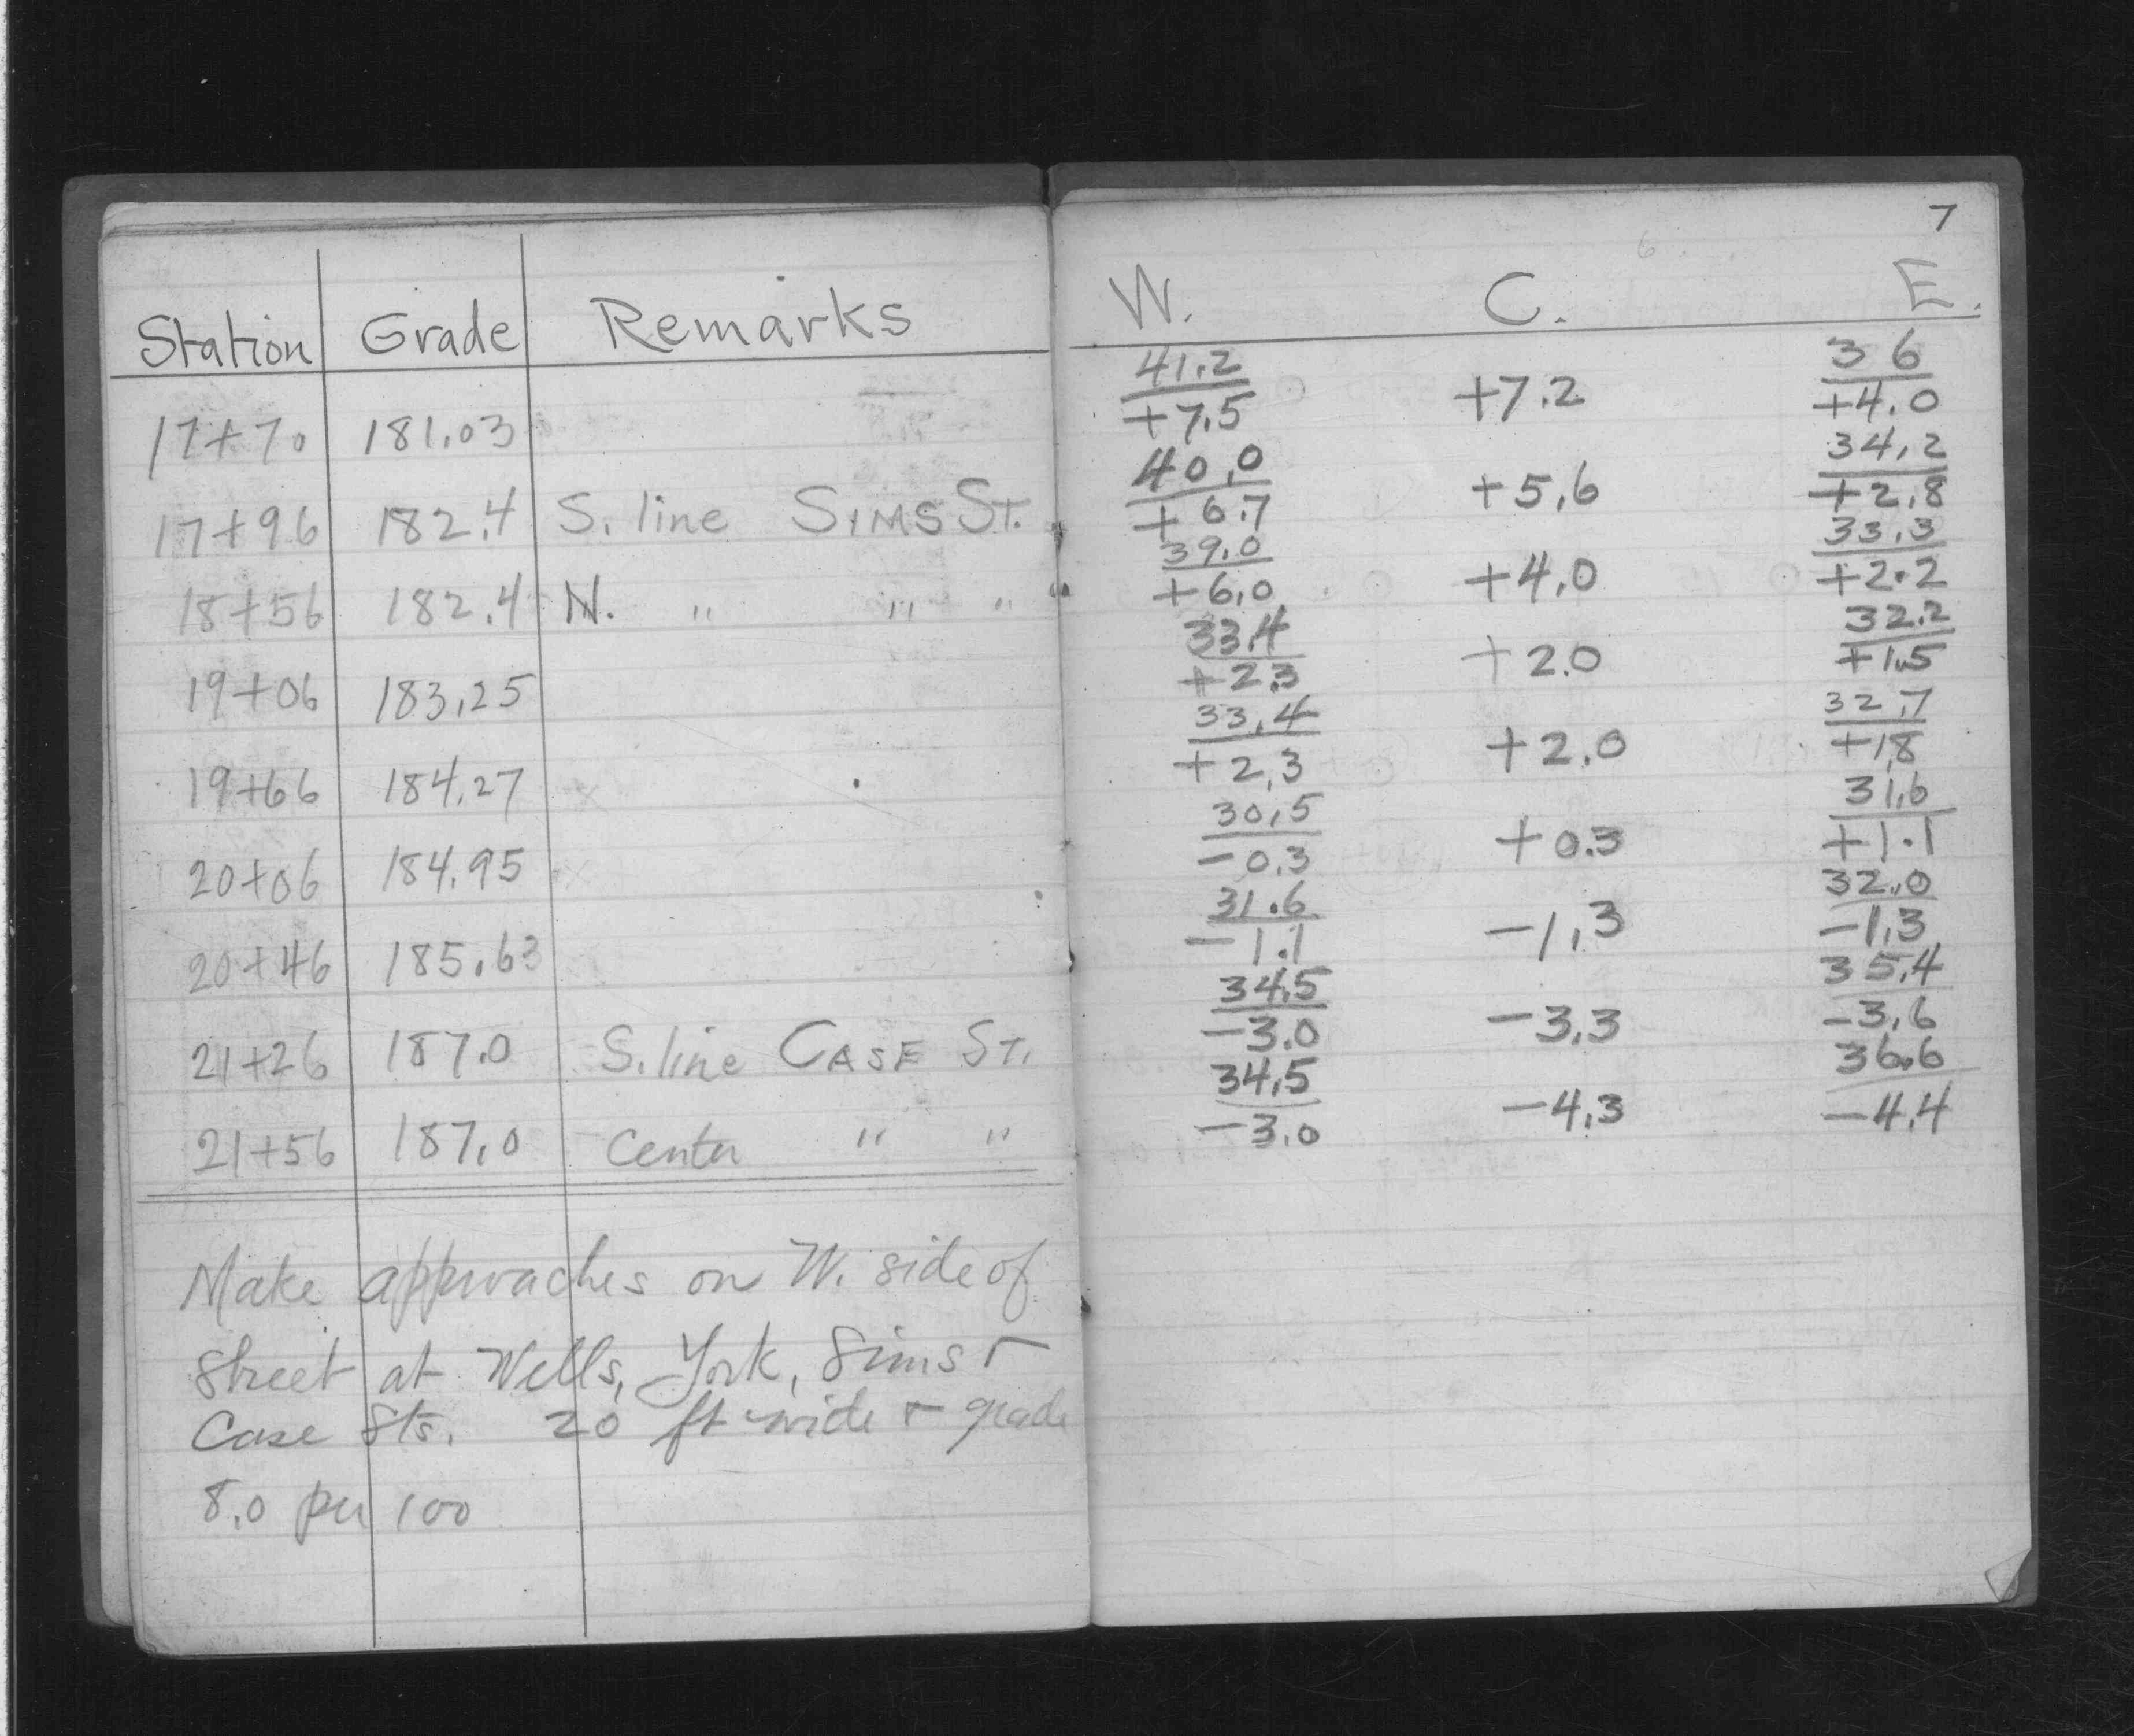 Station Grade Remarks
17+70 181.03
17+96 182.4 S. line SIMS ST.
18+56 182.4 N. " " "
19+06 183.25
19+66 184.27
20+06 184.95
20+46 185.63
21+26 187.0 S. line CASE ST.
21+56 187.0 Center " "
Make approaches on W. side of
Street at Wells, York, Sims &
Case Sts. 20 ft wide & grade
8.0 per 100
7
6
W. C. E.
41.2 36
+7.5 +7.2 +4.0
40.0 34.2
+6.7 +5.6 +2.8
39.0 33.3
+6.0 +4.0 +2.2
33.4 32.2
+2.3 +2.0 +1.5
33.4 32.7
+2.3 +2.0 +1.8
30.5 31.6
-0.3 +0.3 +1.1
31.6 32.0
-1.1 -1.3 -1.3
34.5 35.4
-3.0 -3.3 -3.6
34.5 36.6
-3.0 -4.3 -4.4